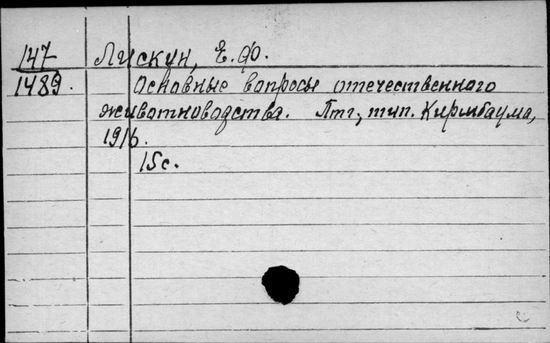 147 Лискун, Е.Ф.
1489. Основные вопросы отечественного
животноводства. Птг, тип. Киршбаума,
1916.
15с.